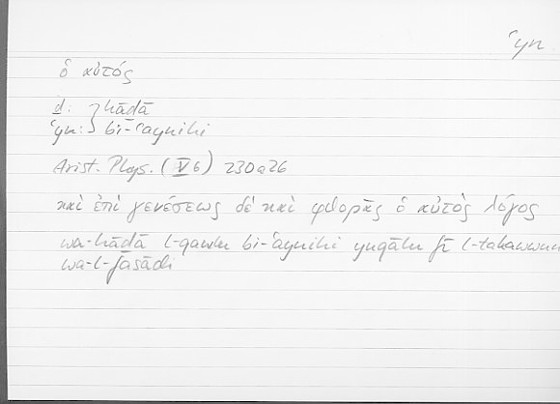 ʿyn
ὁ αὐτός
d: } hāḏā
ʿyn: } bi-ʿaynihi
Arist. Phys. (V 6) 230a26
καὶ ἐπὶ γενέσεως δὲ καὶ φθορᾶς ὁ αὐτὸς λόγος
wa-hāḏā l-qawlu bi-ʿaynihi yuqālu fī l-takawwun
wa-l-fasādi